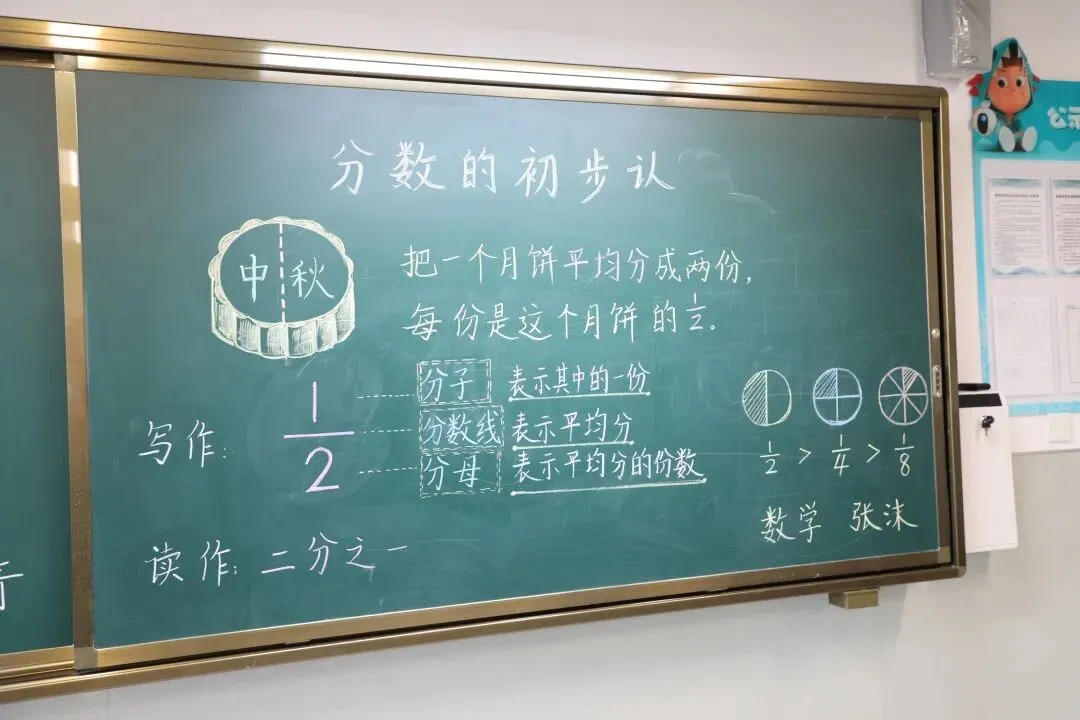 分数的初步认
中秋
把一个月饼平均分成两份,
每份是这个月饼的1/2.
写作: 1/2
分子 表示其中的一份
分数线 表示平均分
分母 表示平均分的份数
读作: 二分之一
1/2 > 1/4 > 1/8
数学 张沫
公示